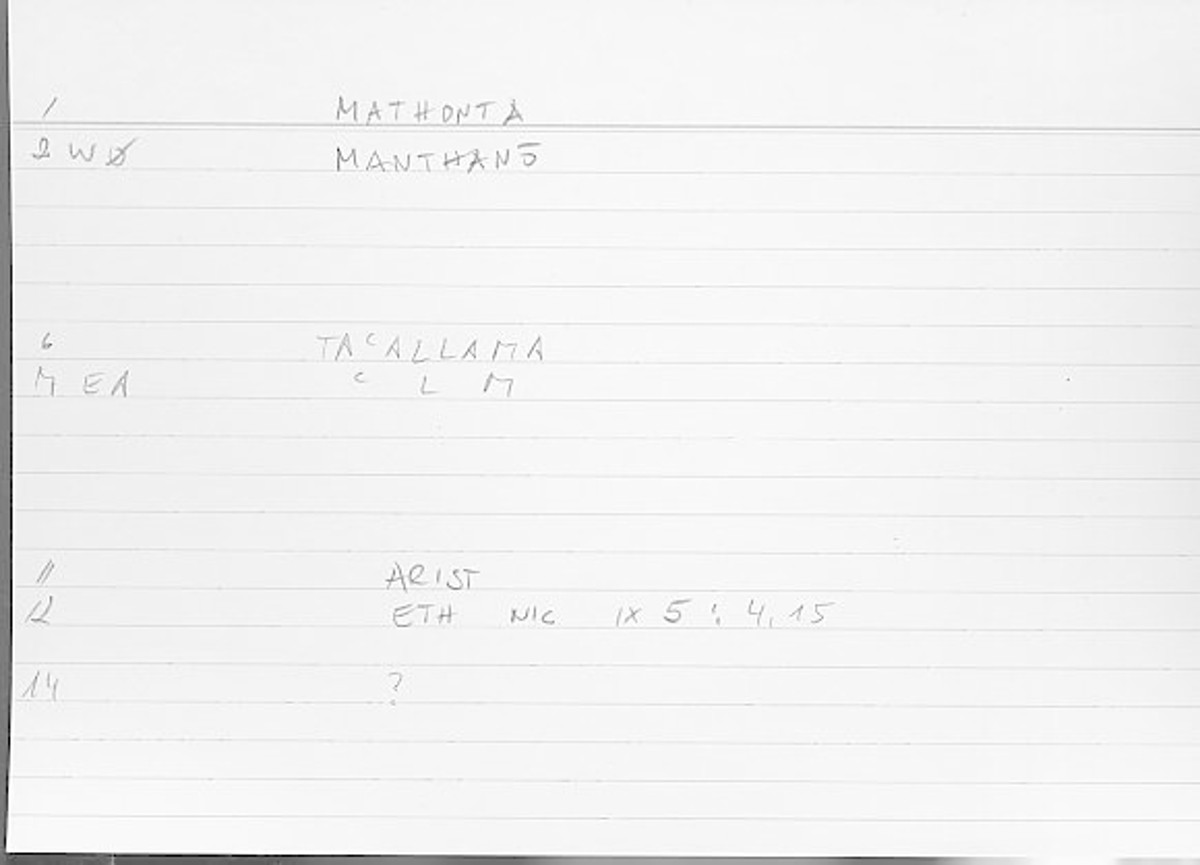 1 MATHONTA
2 WØ MANTHANŌ
6 TAᶜALLAMA
M EA ᶜ L M
11 ARIST
12 ETH NIC IX 5 : 4, 15
14 ?